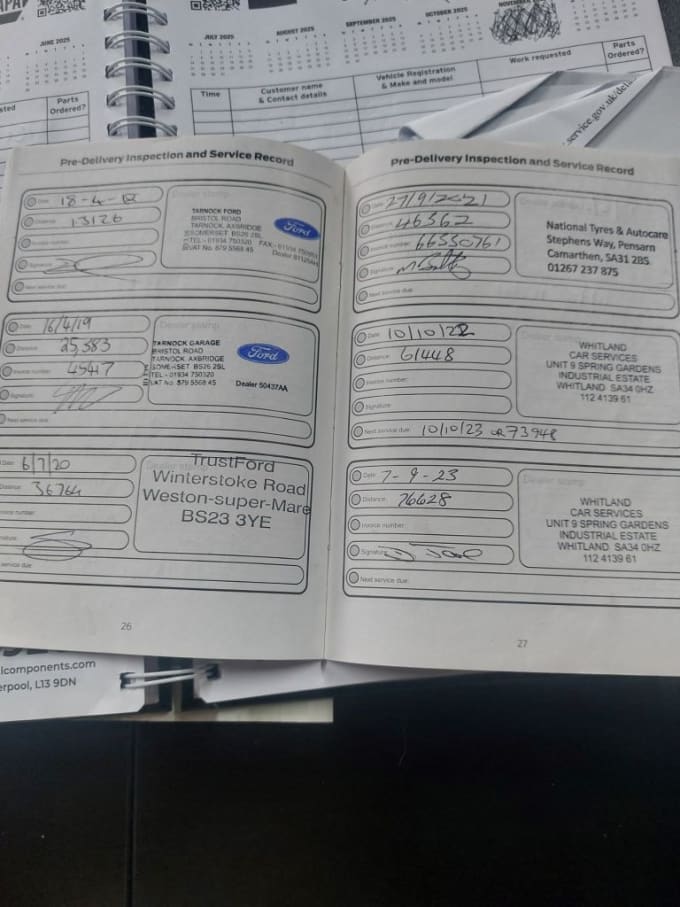 JUNE 2025
JULY 2025
AUGUST 2025
SEPTEMBER 2025
OCTOBER 2025
Parts
Ordered?
Time
Customer name
& Contact details
Vehicle Registration
& Make and model
Work requested
Parts
Ordered?
service.gov.uk/de
Pre-Delivery Inspection and Service Record
Date: 18-4-
Distance: 13126
Invoice number:
Signature:
Next service due:
Dealer stamp
TARNOCK FORD
BRISTOL ROAD
TARNOCK, AXBRIDGE
SOMERSET BS26 2SL
TEL - 01934 750320
VAT No. 879 5568 45
Ford
Date: 16/4/19
Distance: 25,383
Invoice number: 45417
Signature:
Next service due:
Dealer stamp
TARNOCK GARAGE
BRISTOL ROAD
TARNOCK AXBRIDGE
SOMERSET BS26 2SL
TEL - 01934 750320
VAT No. 879 5568 45
Ford
Dealer 50437AA
Date: 6/7/20
Distance: 36764
Invoice number:
Signature:
service due:
TrustFord
Winterstoke Road
Weston-super-Mare
BS23 3YE
26
Pre-Delivery Inspection and Service Record
Date: 27/9/2021
Distance: 46362
Invoice number: 66550761
Signature:
Next service due:
National Tyres & Autocare
Stephens Way, Pensarn
Camarthen, SA31 2BS
01267 237 875
Date: 10/10/22
Distance: 61448
Invoice number:
Signature:
Next service due: 10/10/23 or 73948
WHITLAND
CAR SERVICES
UNIT 9 SPRING GARDENS
INDUSTRIAL ESTATE
WHITLAND SA34 0HZ
112 4139 61
Date: 7-9-23
Distance: 76628
Invoice number:
Signature:
Next service due:
Dealer stamp
WHITLAND
CAR SERVICES
UNIT 9 SPRING GARDENS
INDUSTRIAL ESTATE
WHITLAND SA34 0HZ
112 4139 61
27
lcomponents.com
erpool, L13 9DN